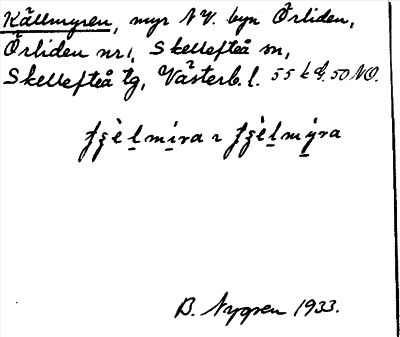 Källmyren, myr N.V. byn Örliden,
Örliden nr 1, Skellefteå sn,
Skellefteå tg, Västerb. l. 55 k d. 50 NO.
B. Nygren 1933.